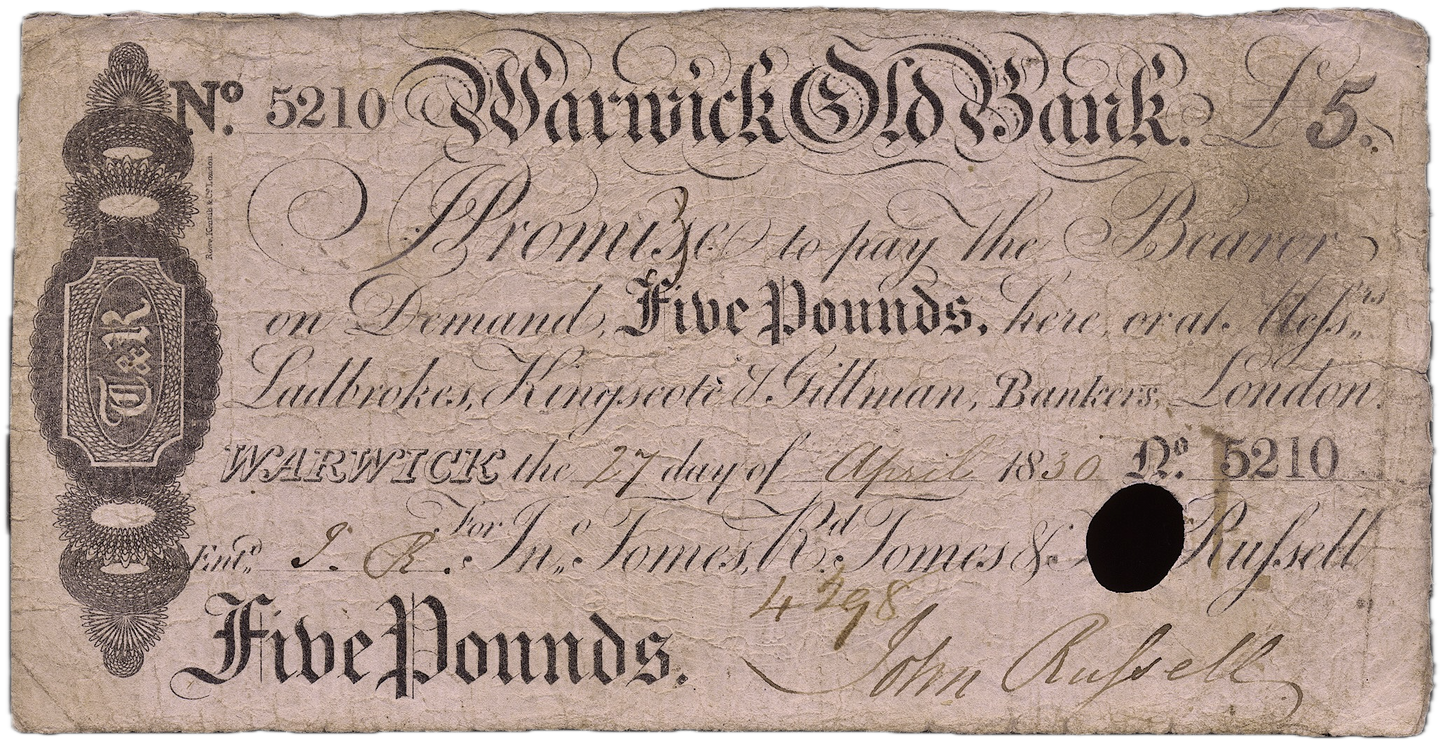 Nº. 5210 Warwick Old Bank. £5.
I Promise to pay the Bearer
on Demand, Five Pounds, here, or at Messrs
Ladbrokes, Kingscote & Gillman, Bankers, London.
WARWICK the 27 day of April 1830 Nº. 5210
For Jnº Tomes, Rd Tomes & Russell
Entd J. R.
4298
Five Pounds.
John Russell
T&R